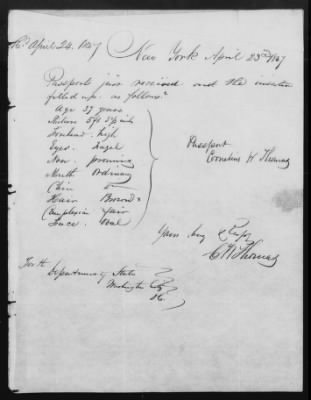 Rd April 24. 1867
New York April 23rd 1867
Passport just received and the
filled up as follows:
Age 37 years
Stature 5 ft
Forehead High
Eyes Hazel
Nose
Mouth Ordinary
Chin "
Hair Brown
Complexion fair
Face Oval
Passport
Cornelius H Thomas
Yours Very
C H Thomas
To the
Department of State
Washington City
DC.